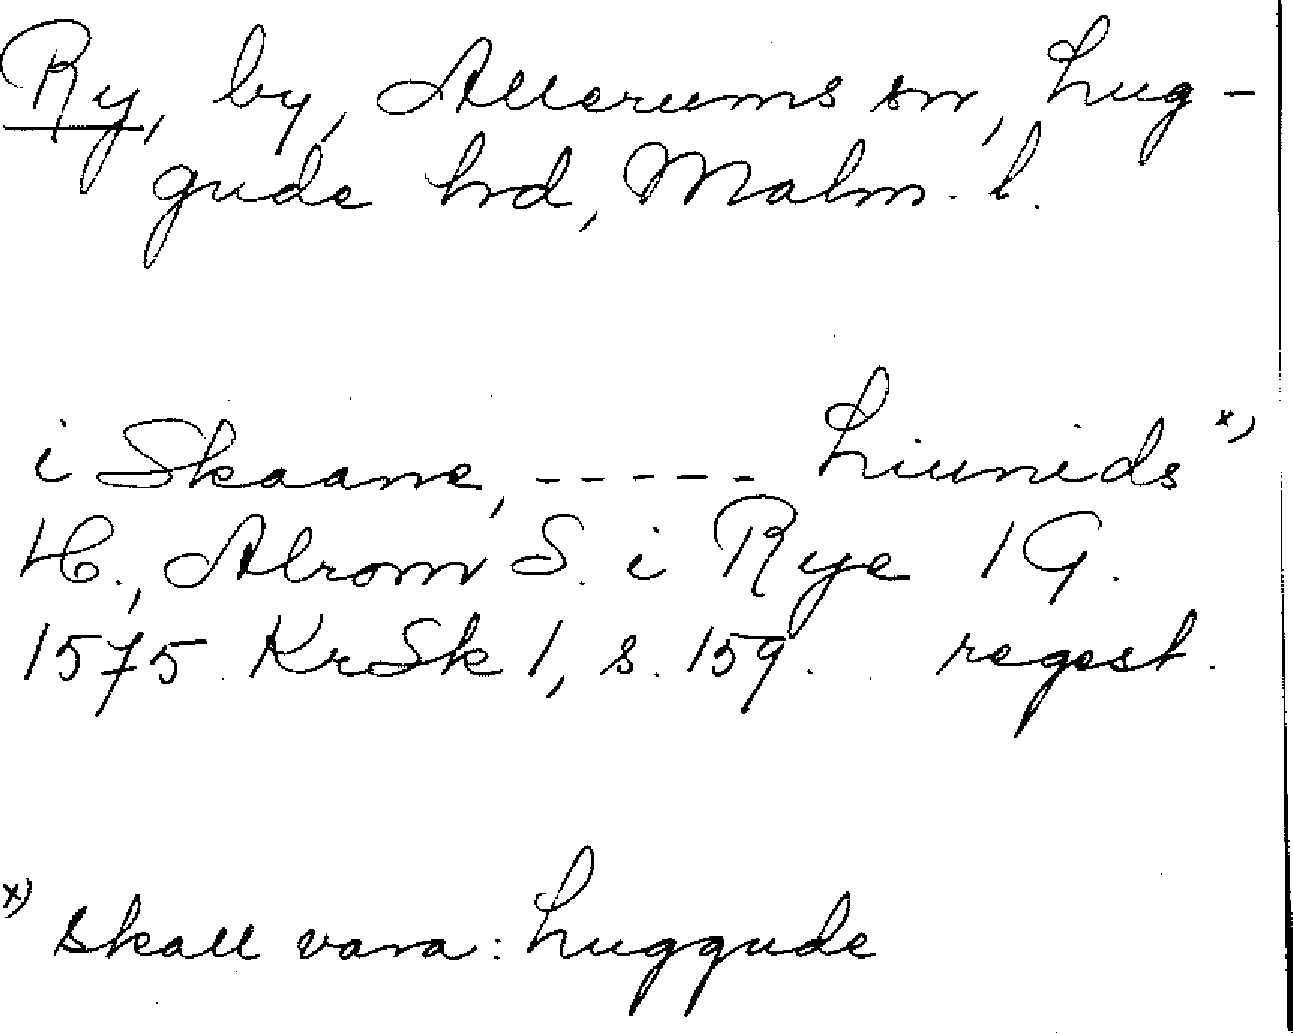 Ry, by, Allerums sn, Lug-
gude hd, Malm. l.
i Skaane, ----- Liunids x)
H., Abrom S. i Rye 1 G.
1575. KrSk 1, s. 159. regest.
x) skall vara: Luggude